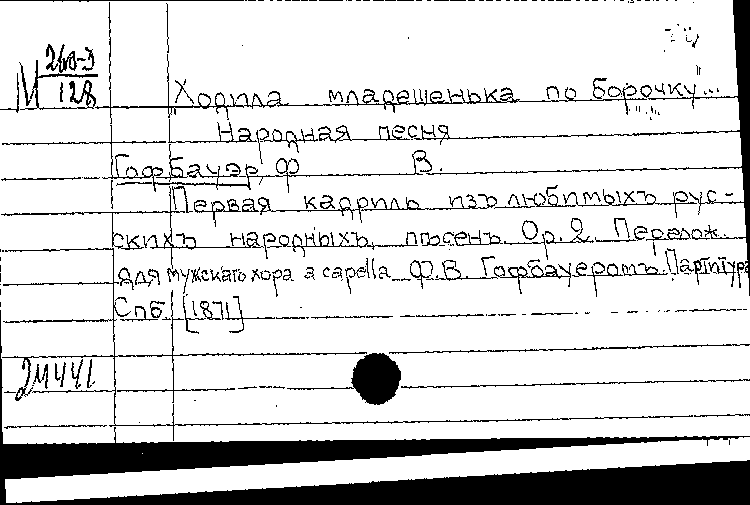 М 260-3
128
"Ходила младешенька по борочку..."
Народная песня
Гофбауэр, Ф В.
Первая кадриль изъ любимыхъ рус-
скихъ народныхъ пѣсенъ. Op. 2. Перелож.
для мужскаго хора a capella Ф.В. Гофбауеромъ. Партитура
Спб. [1871]
2М441